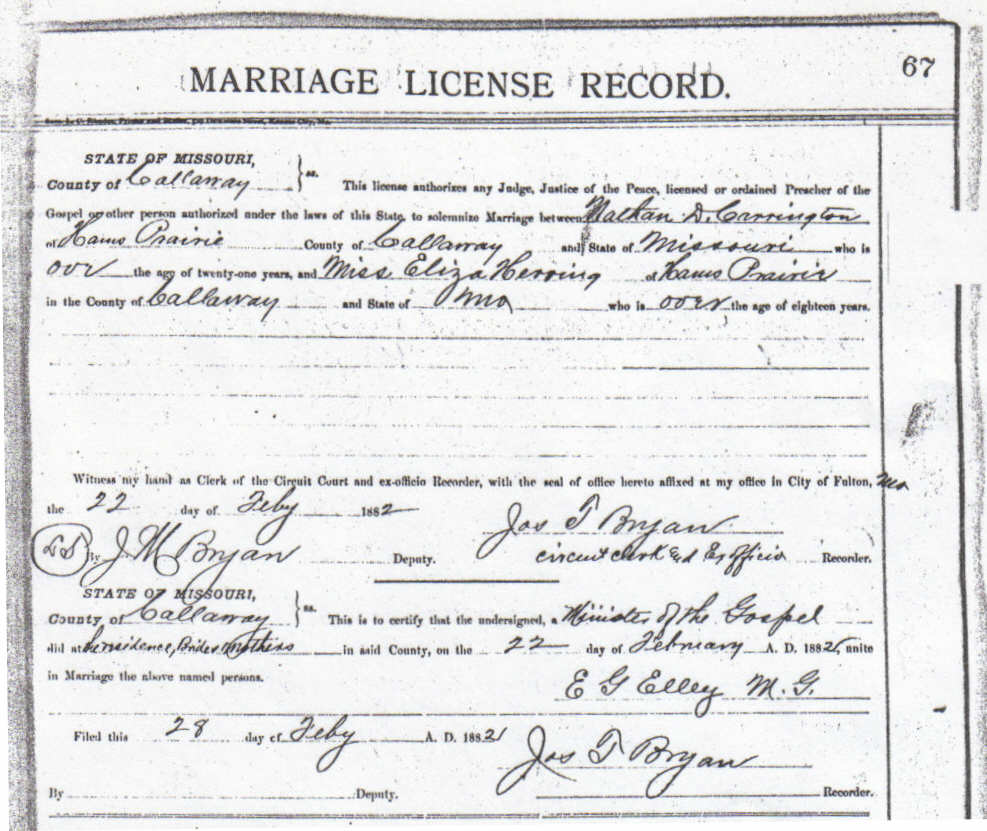 67
MARRIAGE LICENSE RECORD.
STATE OF MISSOURI,
County of Callaway } ss. This license authorizes any Judge, Justice of the Peace, licensed or ordained Preacher of the
Gospel or other person authorized under the laws of this State, to solemnize Marriage between Nathan D. Carrington
of Hams Prairie County of Callaway and State of Missouri who is
over the age of twenty-one years, and Miss Eliza Herring of Hams Prairie
in the County of Callaway and State of Mo who is over the age of eighteen years.
Witness my hand as Clerk of the Circuit Court and ex-officio Recorder, with the seal of office hereto affixed at my office in City of Fulton, Mo
the 22 day of Feby 1882 Jos T Bryan
LS By J M Bryan Deputy. circuit clerk and Ex officio Recorder.
STATE OF MISSOURI,
County of Callaway } ss. This is to certify that the undersigned, a Minister of the Gospel
did at residence, Brides mothers in said County, on the 22 day of February A. D. 1882, unite
in Marriage the above named persons.
E G Elley M. G.
Filed this 28 day of Feby A. D. 1882 Jos T Bryan
By Deputy. Recorder.